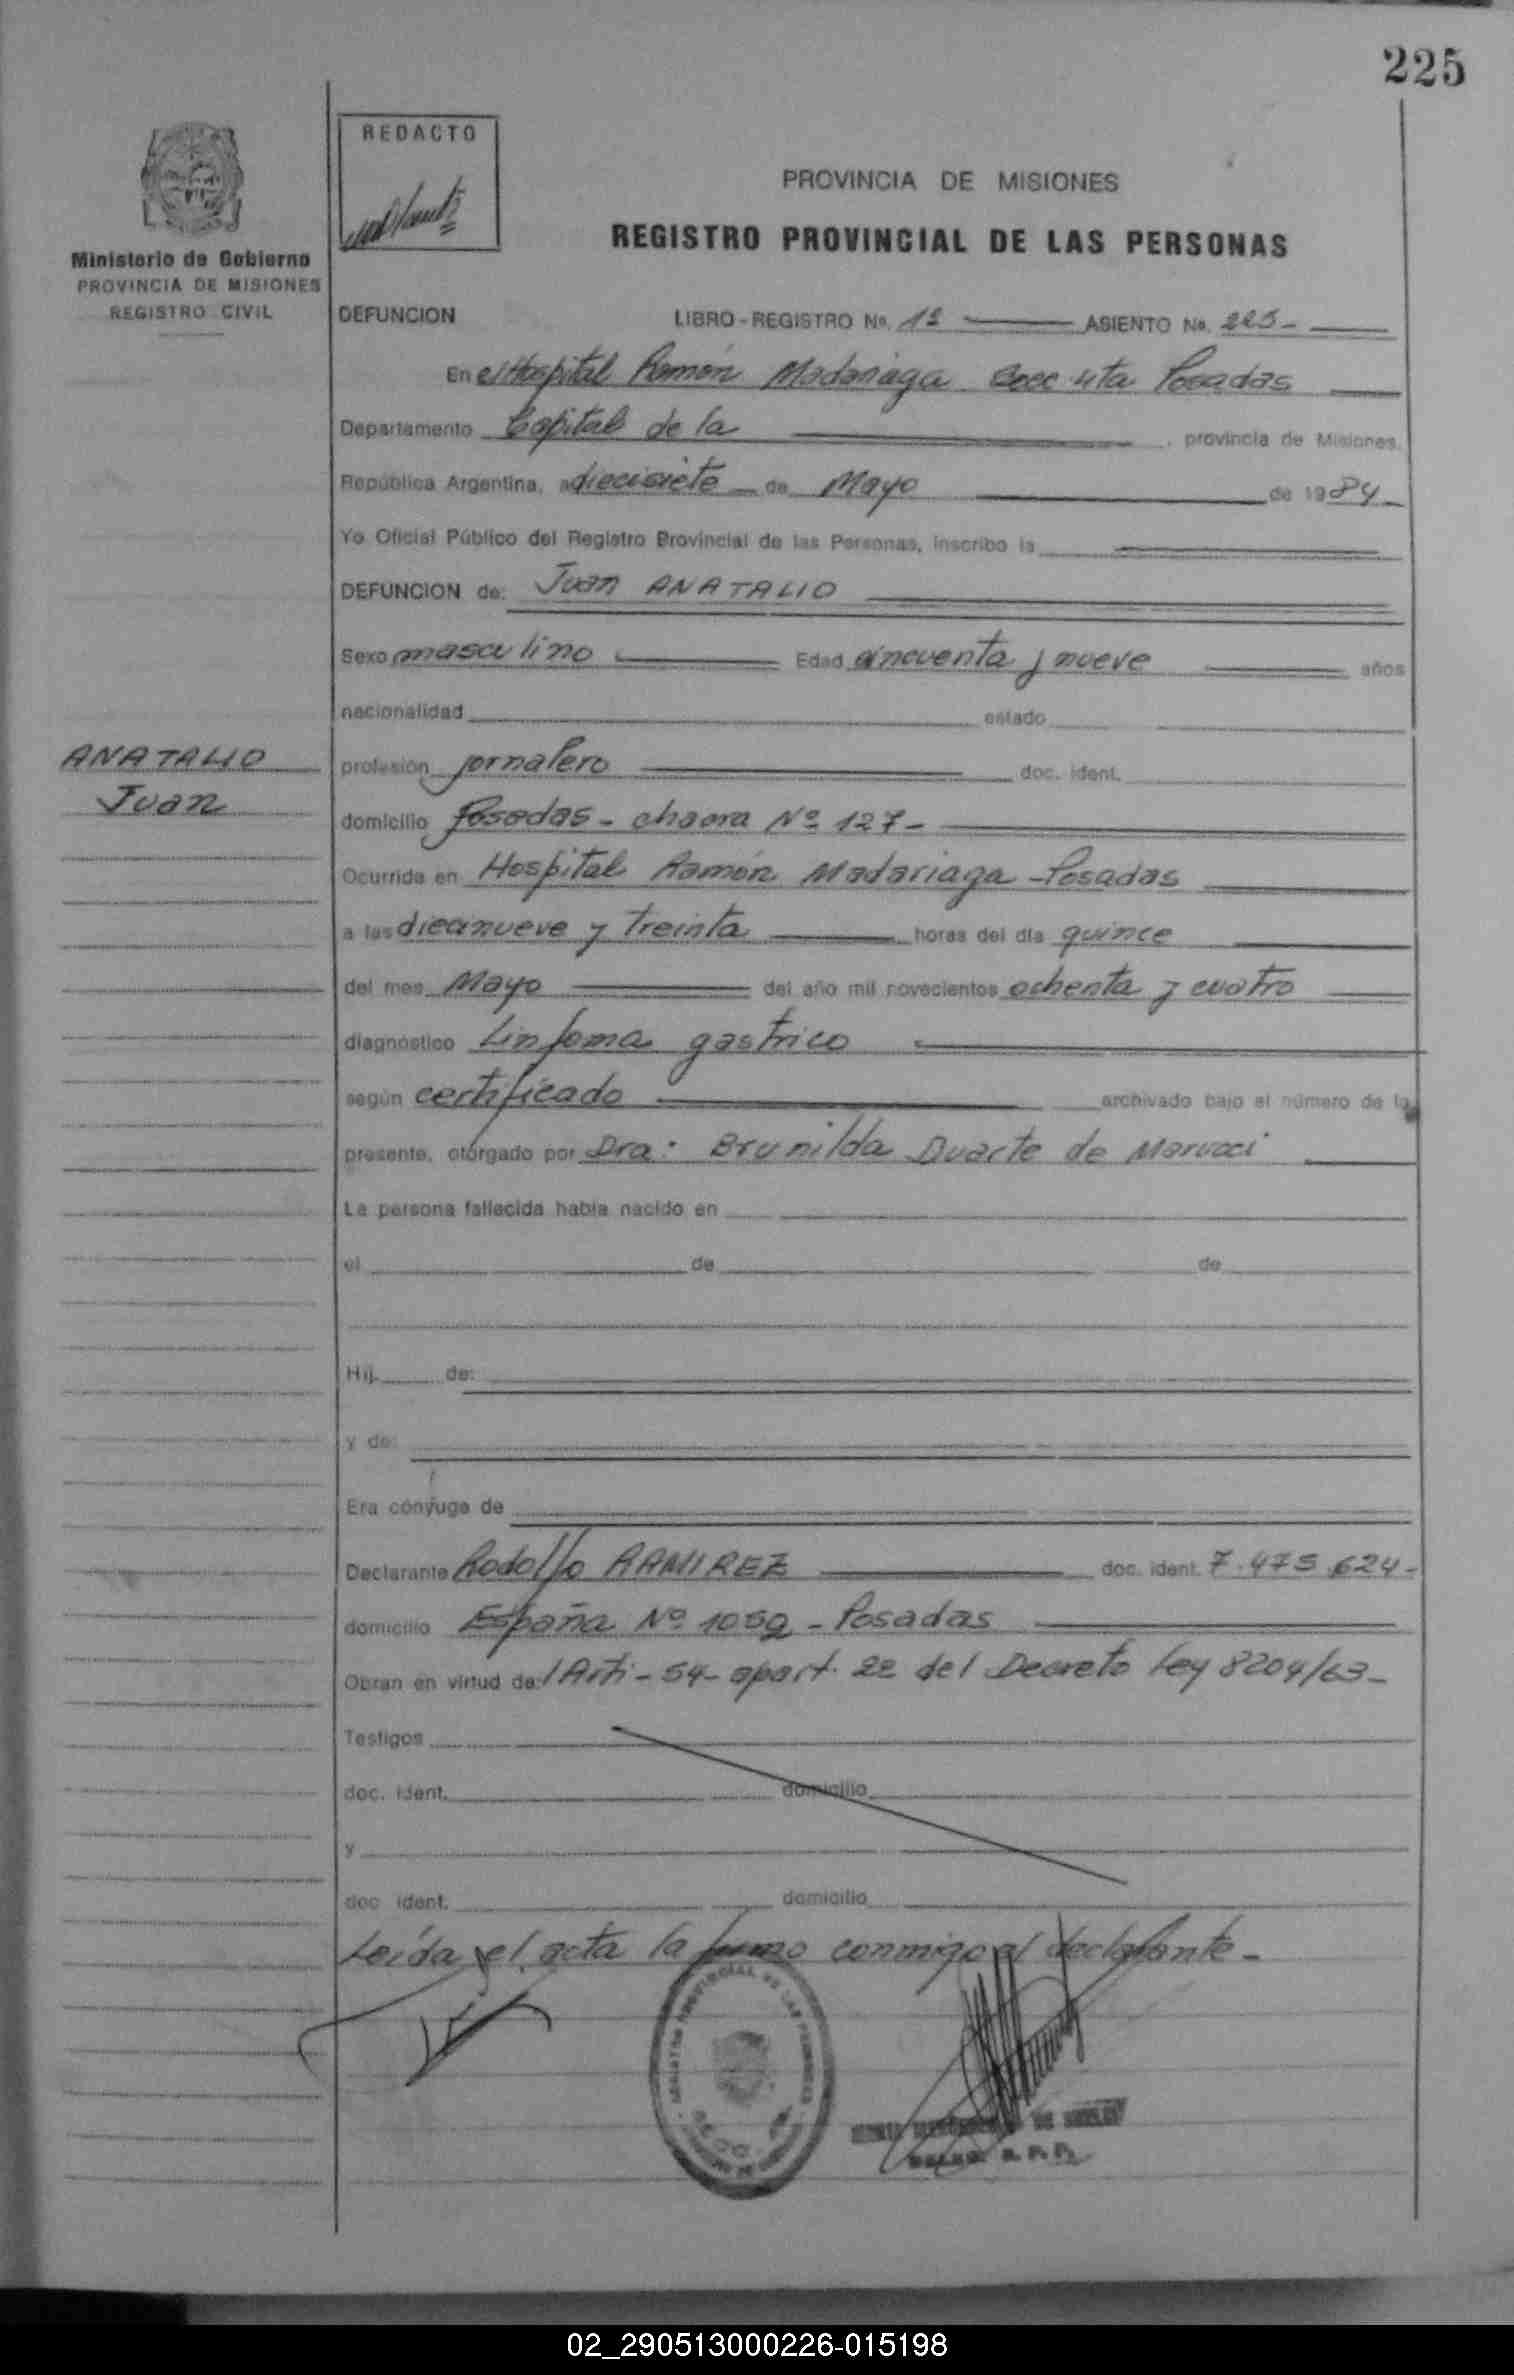 225
REDACTO
PROVINCIA DE MISIONES
REGISTRO PROVINCIAL DE LAS PERSONAS
Ministerio de Gobierno
PROVINCIA DE MISIONES
REGISTRO CIVIL
DEFUNCION LIBRO-REGISTRO No. 1º ASIENTO No. 225-
En el Hospital Ramón Madariaga Secc 4ta Posadas
Departamento Capital de la , provincia de Misiones,
República Argentina, a diecisiete de Mayo de 1984
Yo Oficial Público del Registro Provincial de las Personas, inscribo la
DEFUNCION de: Juan ANATALIO
Sexo masculino Edad cincuenta y nueve años
nacionalidad estado
ANATALIO
Juan
profesión jornalero doc. ident.
domicilio Posadas - chacra Nº 127-
Ocurrida en Hospital Ramón Madariaga - Posadas
a las diecinueve y treinta horas del día quince
del mes Mayo del año mil novecientos ochenta y cuatro
diagnóstico Linfoma gastrico
según certificado archivado bajo el número de la
presente, otorgado por Dra: Brunilda Duarte de
La persona fallecida había nacido en
el de de
Hij de:
y de:
Era cónyuge de
Declarante Rodolfo RAMIREZ doc. ident. 7.475.624-
domicilio España Nº 1052 - Posadas
Obran en virtud de: l Arti - 54- apart. 2º del Decreto Ley 8204/63-
Testigos
doc. ident. domicilio
y
doc. ident. domicilio
Leída el acta la firmo conmigo el declarante-
REGISTRO PROVINCIAL DE LAS PERSONAS
02_290513000226-015198